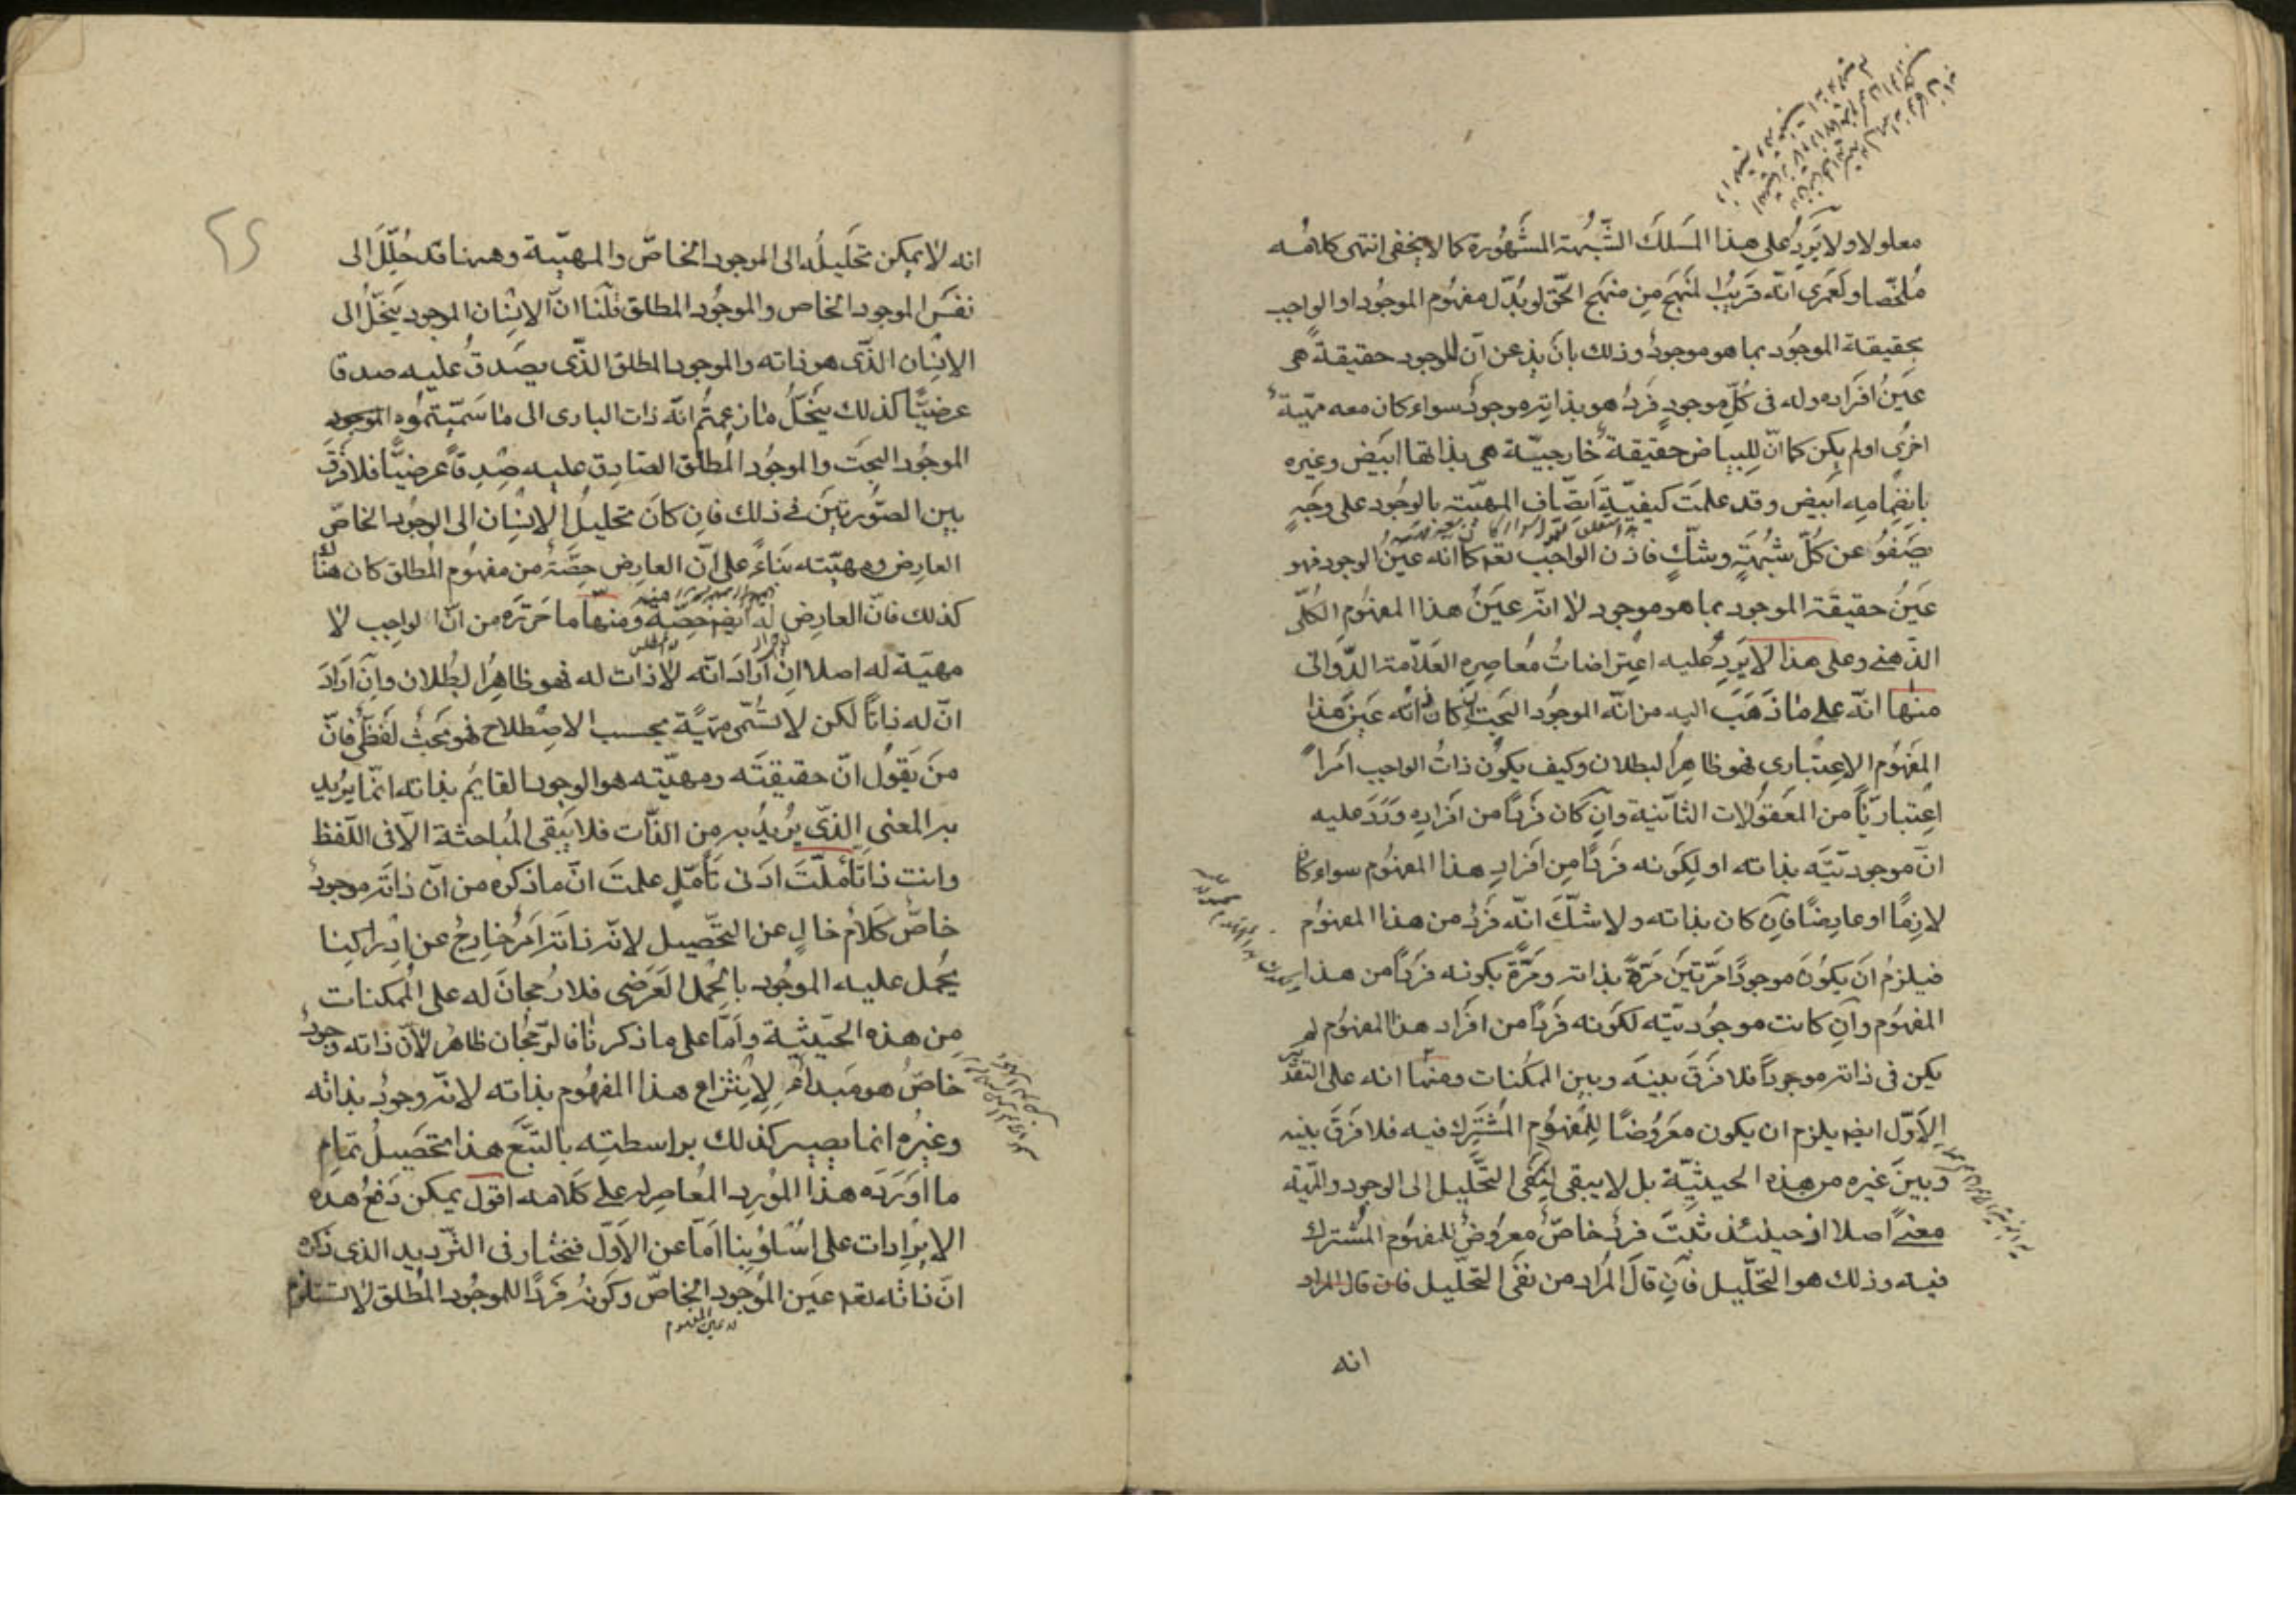 معلولا ولا يَرِدُ على هذا المَسلكَ الشُّبهة المشهُورة كما لا يخفى انتهى كلامُه
مُلخّصا ولَعَمرى انّه قَريبُ المَنهَج مِن منهَج الحَقّ لو بُدّل مفهُوم الموجُود او الواجب
بحقيقة الموجُود بما هو موجودٌ وذلك بانَ يذعن انّ للموجود حقيقةً هى
عَينُ افرَاده وله فى كُلّ موجودٍ فَردٌ هو بذاتِه موجودٌ سواء كان معه مهيّةٌ
اخرى اولم يكن كما انّ للبياض حقيقةً خارجيّة هى بذاتها ابَيض وغيره
بانضِمامِه ابَيض وقد علمتَ كيفيّةَ اتّصاف المهيّة بالوجُود على وجَهٍ
يَصَفوُ عن كُلّ شبُهةٍ وشكٍّ فاذن الواجَب تعه كما انه عَينُ الوجود فهو
عَينُ حقيقَة الموجود بما هو موجود لا انّه عَينُ هذا المفهُومِ الكُلّى
الذّهنى وعلى هذا لا يَرِدُ عليه اعِتراضاتُ مُعاصِره العَلاّمة الدّوانى
منها انّه على ما ذَهَبَ اليه من انّه الموجُود البَحت ان كان انّه عَين هذا
المفَهُوم الاِعِتبارى فهو ظاهِرُ البطلان وكيف يكوُن ذاتُ الواجب امَراً
اعِتباريّاً من المعَقوُلات الثانَية وانِ كان فَرداً من افَرادِه وَرَدَ عليه
انّ موجوديّتَه بذاته او لكَونه فَرداً مِن افَرادِ هذا المفهُوم سواء كان
لازمًا او عارضًا فانِ كان بذاته ولا شكَّ انّه فَردٌ من هذا المفهُوم
فيلزمُ انَ يكوُنَ موجودًا مَرّتَين مَرّةً بذاته ومَرّةً بكونه فردَاً من هذا
المفهُوم وانِ كانت موجُوديّته لكَونه فَرداً من افَراد هذا المفهُوم لم
يكن فى ذاته موجوداً فلا فَرقَ بينَه وبين الممكنات ومنها انه على التقدير
الاَوّل ايضه يلزم ان يكون معَرُوضًا للمفَهُومِ المُشتَركِ فيه فلا فَرقَ بينه
وبَينَ غيره من هذه الحيثيّة بل لا يبقى لنِفَى التَّحليل الى الوجود والمهيّة
معنىً اصلا اذ حينئذ ثبتَ فردٌ خاصٌّ معروضٌ للمفهُوم المُشترك
فيه وذلك هو التَحليل فانِ قالَ المُراد من نفَى التحلَيل فان قال المراد
انه
٢٤
انه لا يمكن تحَليلُه الى الموجود الخاصّ والمهيّة وههنا قد حُلّلَ الى
نفسَ الموجود الخاص والموجُود المطلق قُلنَا انّ الانِسان الموجود ينحَلُّ الى
الانِسان الذّى هو ذاته والموجود المطلق الذّى يصَدقُ عليه صدقا
عرضيًّا كذلك ينحَلُّ ما زعمتُم انّه ذات البارى الى ما سَمّيتموُه الموجود
الموجُود البحَت والموجُود المُطلَق الصّادِق عليه صِدقاً عرضيًّا فلا فَرقَ
بين الصّورتَين فى ذلك فانِ كانَ تحليلُ الاِنسِان الى الوجُود الخاصّ
العارِض ومهيّته بنَاءً على انّ العارِض حِصَّةٌ من مفهُوم المُطلق كان هُنا
كذلك فانّ العارِض له ايضه حِصّة ومنها ما حَرّرَه من انّ الواجب لا
مهيّة له اصلا انِ ارَادَ انّه لا ذات له فهو ظاهِرُ البُطلان وانِ ارَادَ
انّ له ذاتاً لكن لا تسُمّى مهيّةً بحسب الاصِطلاح فهو بحَثٌ لفَظىٌّ فانّ
منَ يَقوُل انّ حقيقتَه ومهيّته هو الوجود القايمُ بذاته انّما يُريد
به المعنى الذّى يرُيدُ به من الذّات فلا يَبَقى المُباحثة الاّ فى اللّفظ
وانت اذا تأمّلتَ ادَنى تَأمّلٍ علمتَ انّ ما ذكره من انّ ذاتَه موجودٌ
خاصٌّ كلَامٌ خالٍ عن التحّصيل لانّه ذاته امَرٌ خارجٌ عن ادِراكِنا
يحُمل عليه الموجُود بالحمَل العَرَضى فلا رُجحانَ له على المُمكنات
مِن هذه الحَيثيّة وامّا على ما ذكرنا فالرّجُحان ظاهرٌ لانّ ذاته وجودٌ
خاصٌّ هو مَبداءٌ لاِنِتزاع هذا المفهُوم بذاته لانّه وجودٌ بذاته
وغيرُه انما يصير كذلك بواسطته بالتّبَع هذا تحَصيلُ تمَام
ما اورَدَه هذا المُورِد المُعاصِر له على كَلامه اقول يمكن دَفعُ هذه
الايِرادات على اسُلوُبنا امّا عن الاَوّل فنختار فى الترّديد الذى ذكره
انّ ذاته تعه عَين الموَجود الخاصّ وكَونُه فَردًا للموجُود المُطلق لا تستلزم